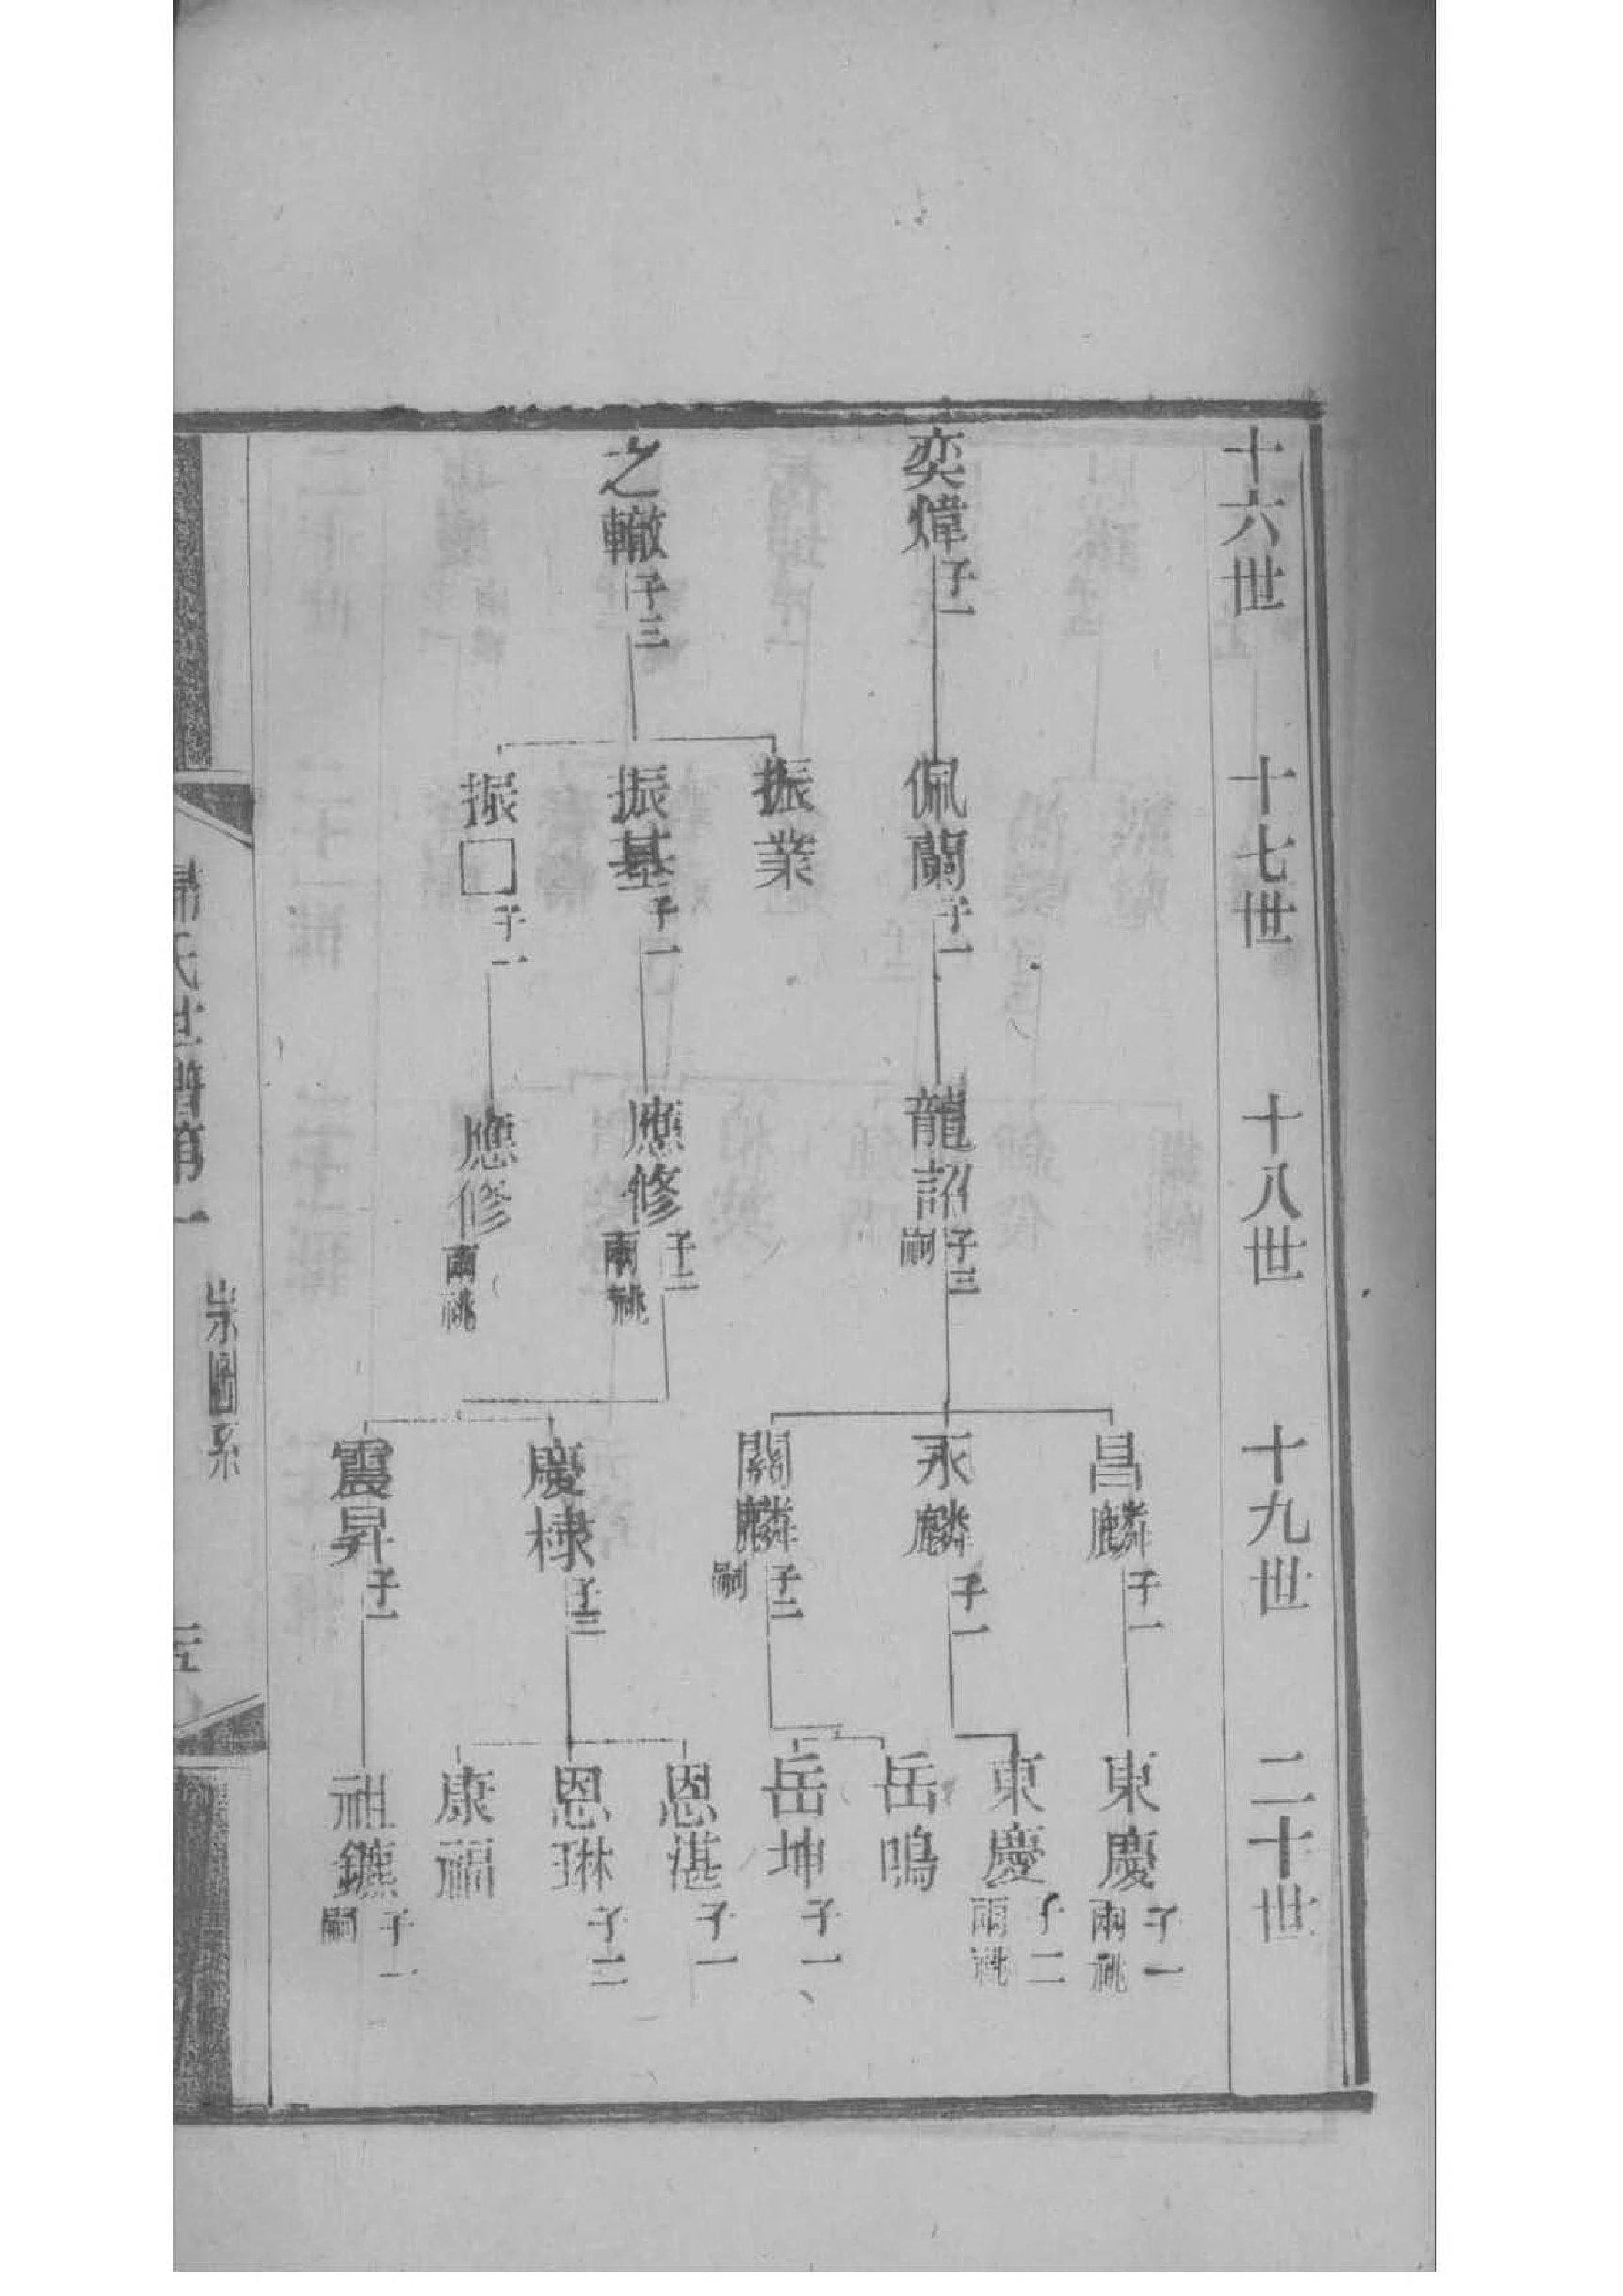 十六世
十七世
十八世
十九世
二十世
奕煒 子一
之轍 子三
佩蘭 子一
振業
振基 子一
振□ 子一
龍詔 子三 嗣
應修 子二 兩祧
應修 兩祧
昌麟 子一
永麟 子一
關麟 子二 嗣
慶棣 子三
震昇 子一
東慶 子一 兩祧
東慶 子二 兩祧
岳鳴
岳坤 子一
恩湛 子一
恩琳 子二
康福
祖鑣 子一 嗣
氏世譜第一
宗圖系
五